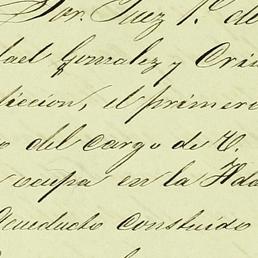 Sor. Juez 1º. de
fael Gonzalez y Cris
diccion, el primero
o del cargo de V.
ocupa en la Hda
acueducto constuido